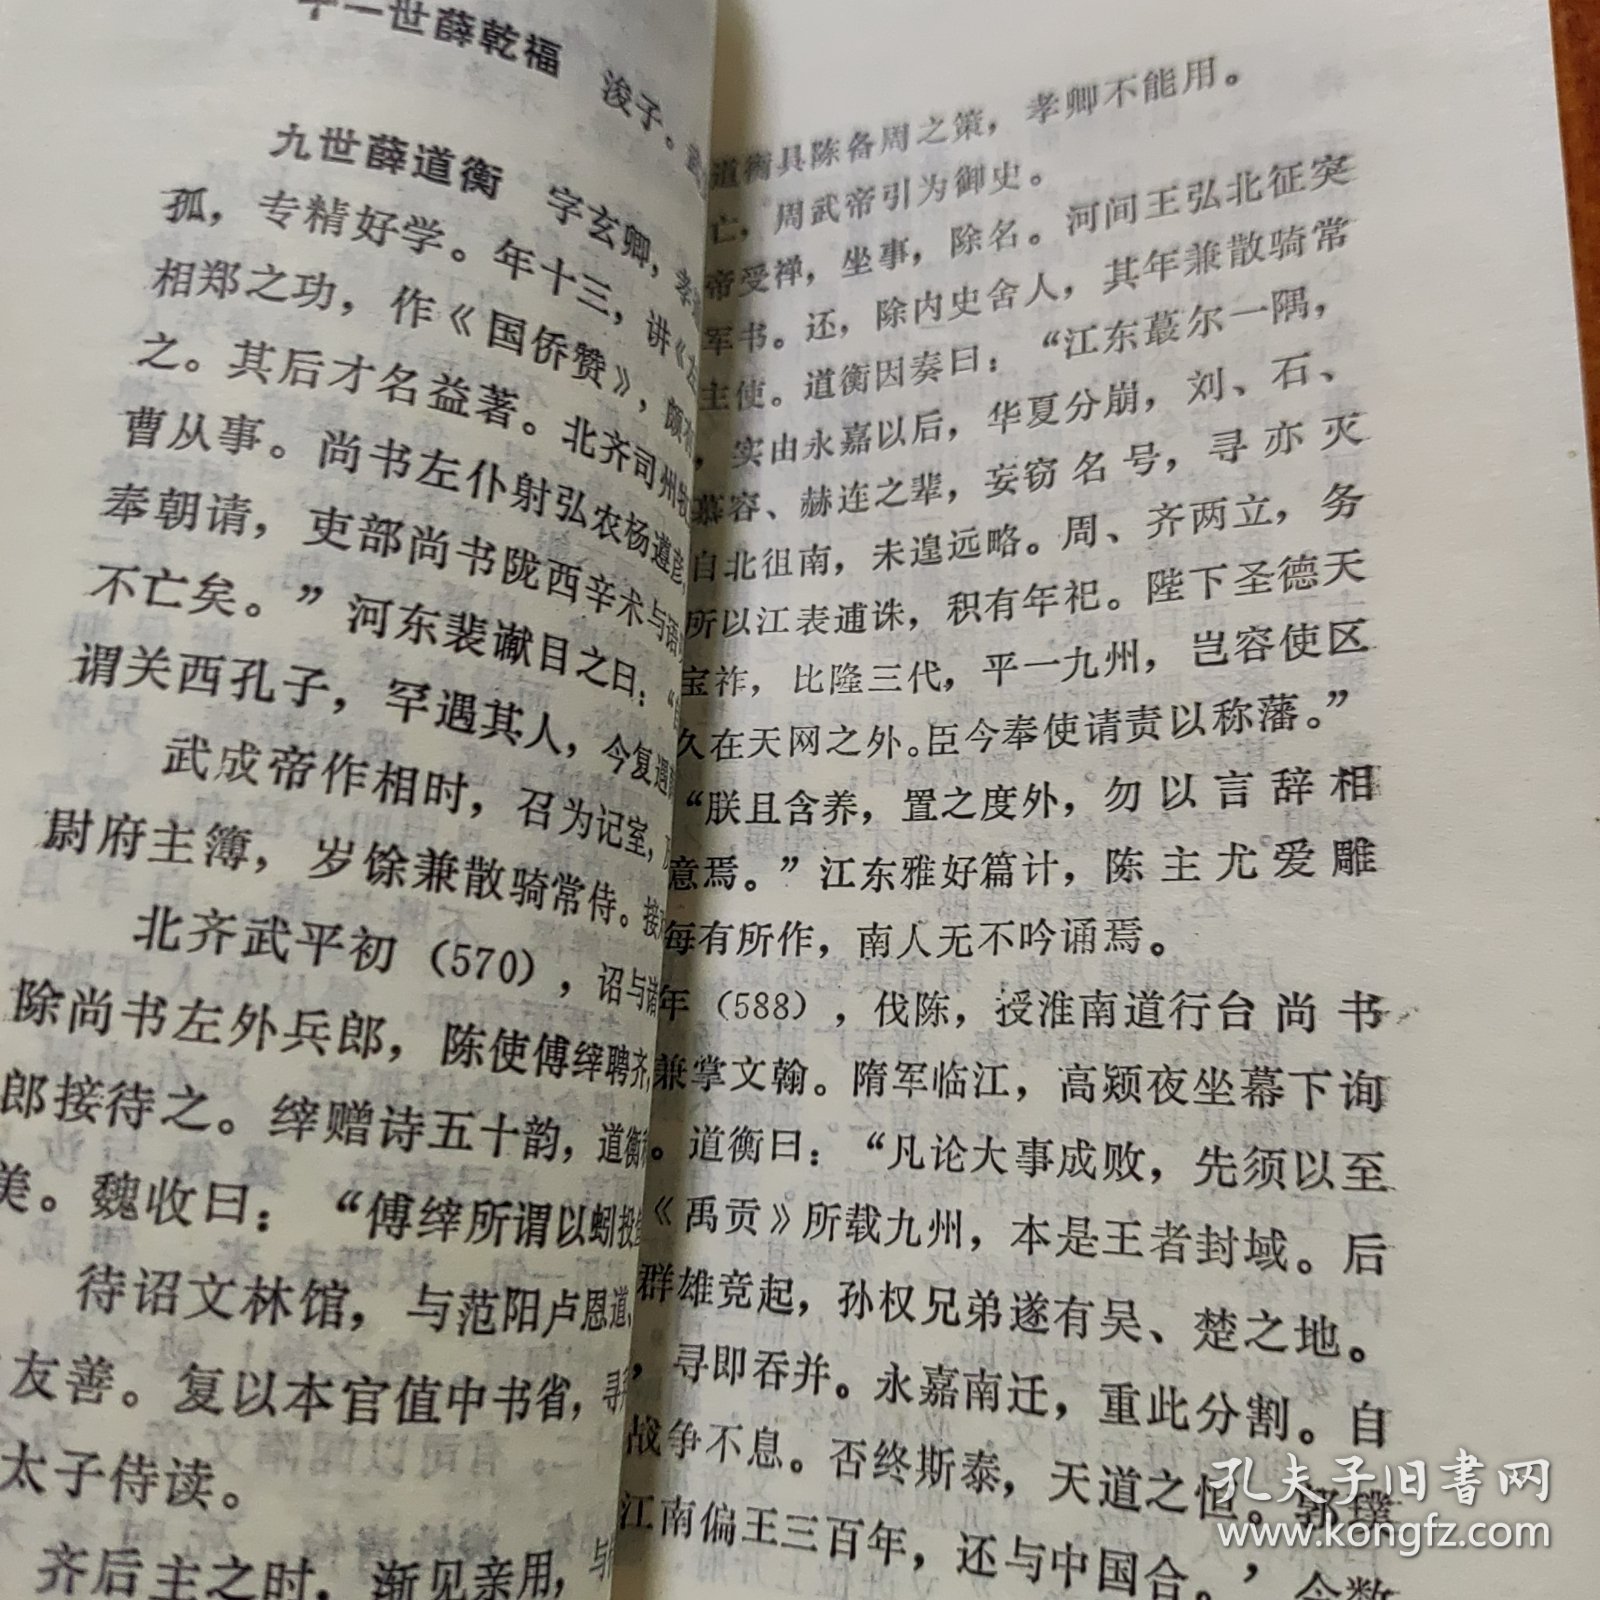 十一世薛乾福　浚子。
九世薛道衡　字玄卿，孝
孤，专精好学。年十三，讲《
相郑之功，作《国侨赞》，颇有
之。其后才名益著。北齐司州牧
曹从事。尚书左仆射弘农杨遵彦
奉朝请，吏部尚书陇西辛术与语
不亡矣。”河东裴谳目之曰：“
谓关西孔子，罕遇其人，今复遇
武成帝作相时，召为记室，
尉府主簿，岁馀兼散骑常侍。接
北齐武平初（570），诏与诸
除尚书左外兵郎，陈使傅縡聘齐，
郎接待之。縡赠诗五十韵，道衡
美。魏收曰：“傅縡所谓以蚓投
待诏文林馆，与范阳卢思道、
友善。复以本官值中书省，寻
太子侍读。
齐后主之时，渐见亲用，与
道衡具陈备周之策，孝卿不能用。
亡，周武帝引为御史。
帝受禅，坐事，除名。河间王弘北征突
军书。还，除内史舍人，其年兼散骑常
主使。道衡因奏曰：“江东蕞尔一隅，
，实由永嘉以后，华夏分崩，刘、石、
慕容、赫连之辈，妄窃名号，寻亦灭
自北徂南，未遑远略。周、齐两立，务
所以江表逋诛，积有年祀。陛下圣德天
宝祚，比隆三代，平一九州，岂容使区
久在天网之外。臣今奉使请责以称藩。”
“朕且含养，置之度外，勿以言辞相
意焉。”江东雅好篇计，陈主尤爱雕
每有所作，南人无不吟诵焉。
年（588），伐陈，授淮南道行台尚书
兼掌文翰。隋军临江，高颎夜坐幕下询
。道衡曰：“凡论大事成败，先须以至
《禹贡》所载九州，本是王者封域。后
群雄竞起，孙权兄弟遂有吴、楚之地。
，寻即吞并。永嘉南迁，重此分割。自
战争不息。否终斯泰，天道之恒。郭璞
江南偏王三百年，还与中国合。’今数
孔夫子旧书网
www.kongfz.com